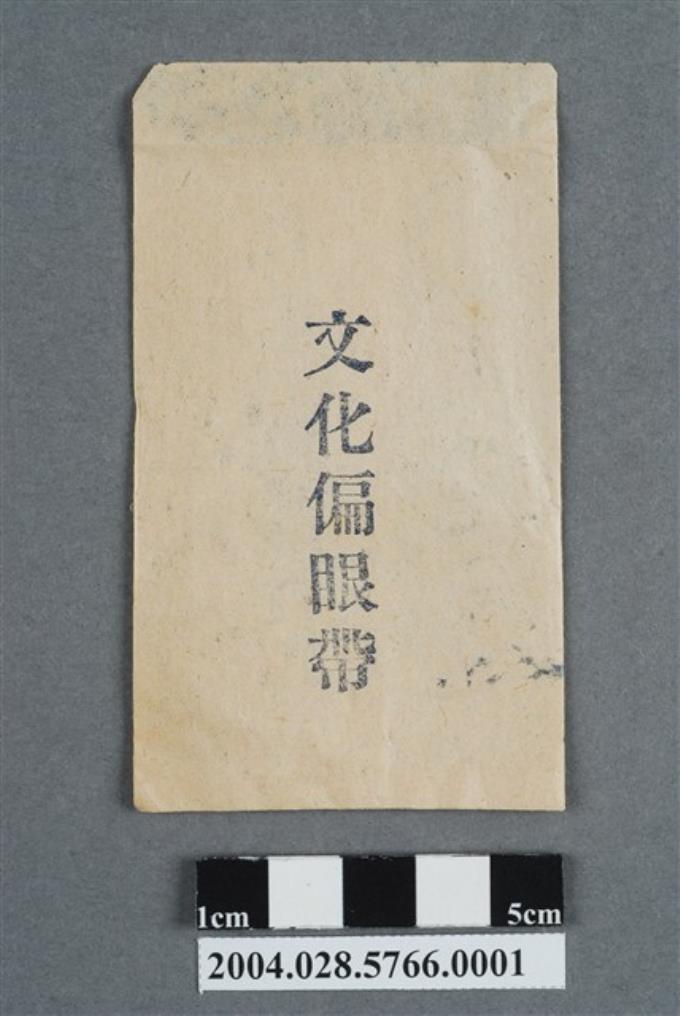 文化偏眼帶
1cm 5cm
2004.028.5766.0001